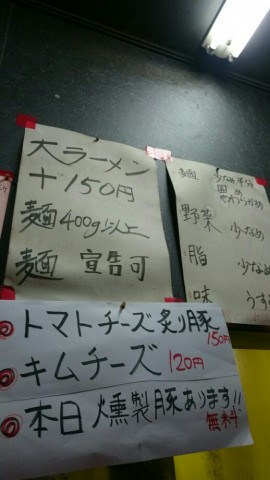 大ラーメン
+150円
麺400g以上
麺 宣告可
麺 少なめ 半分
固め
やわらかめ
野菜 少なめ
脂 少なめ
味 うす
トマトチーズ炙り豚
150円
キムチーズ 120円
本日燻製豚あります!!
無料